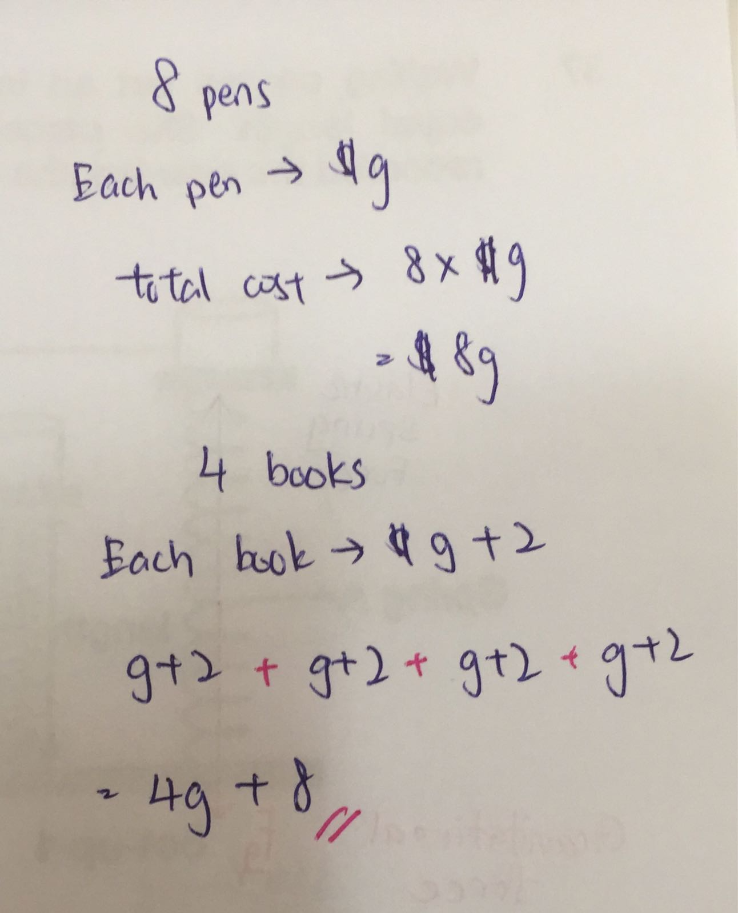 8 pens
Each pen → $g
total cost → 8 × $g
= $8g
4 books
Each book → $g + 2
g+2 + g+2 + g+2 + g+2
= 4g + 8 //